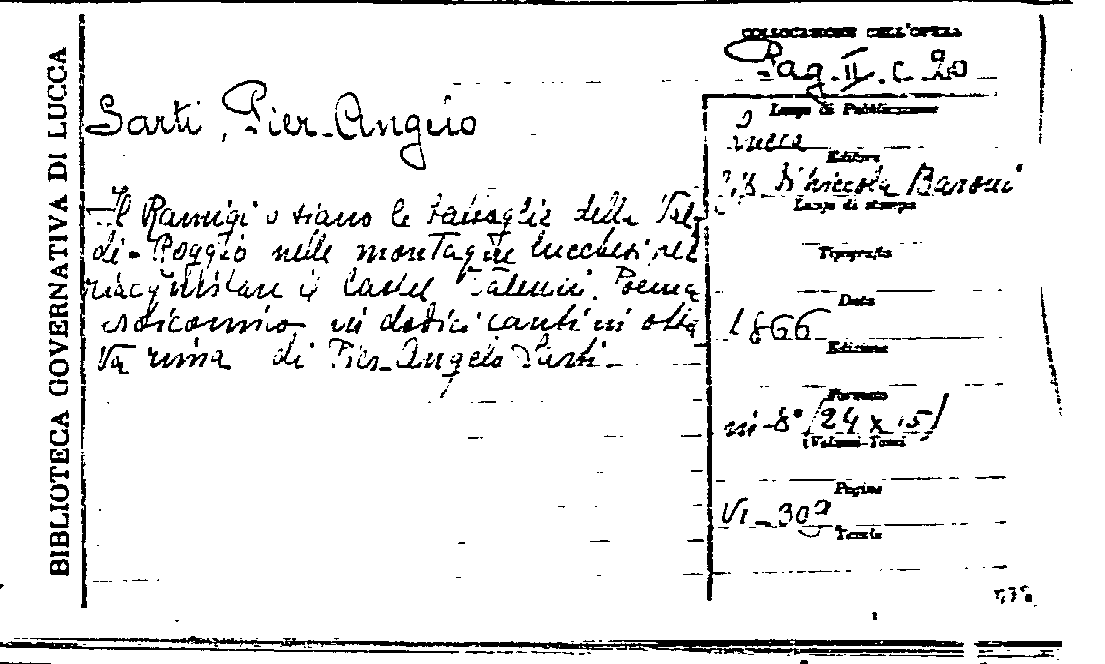 BIBLIOTECA GOVERNATIVA DI LUCCA
COLLOCAZIONE DELL'OPERA
Pag. II. C. 20
Sarti, Pier-Angelo
Il Ramigi o siano le battaglie della Val
di-Poggio nelle montagne lucchesi per
riacquistare il Castel Poema
eroicomico in dodici canti in otta
va rima di Pier-Angelo Sarti-
Luogo di Pubblicazione
Lucca
Editore
Di Niccola Baroni
Luogo di stampa
Tipografia
Data
1866
Edizione
Formato
in-8° (24 x 15)
(Volumi-Tomi
Pagine
VI-302
Tavole